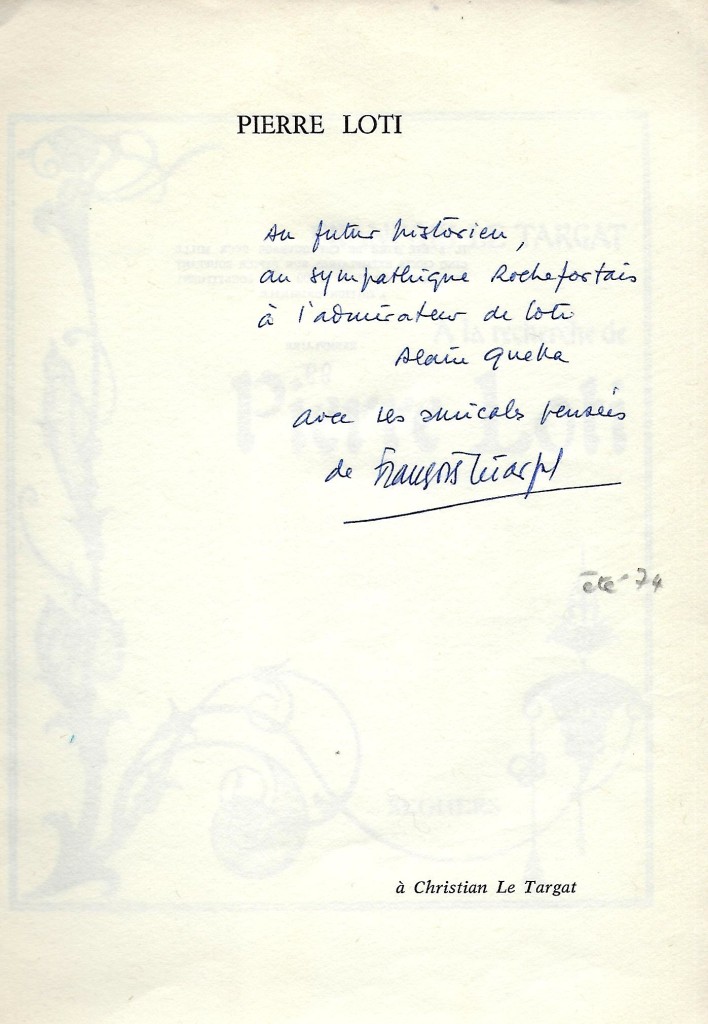 PIERRE LOTI
Au futur historien,
au sympathique Rochefortais
à l'admirateur de Loti
Alain Quella
avec les amicales pensées
de François
été 74
SEGHERS
à Christian Le Targat